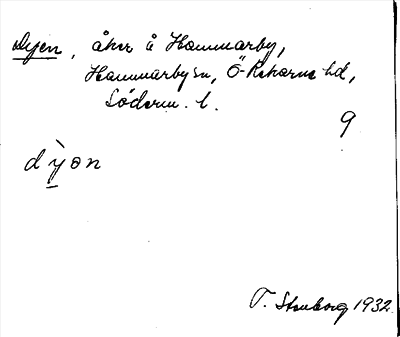 Dyen, åker å Hammarby,
Hammarby sn, Ö-Rekarne hd,
Söderm. l.
9
dỳon
T. Stenborg 1932